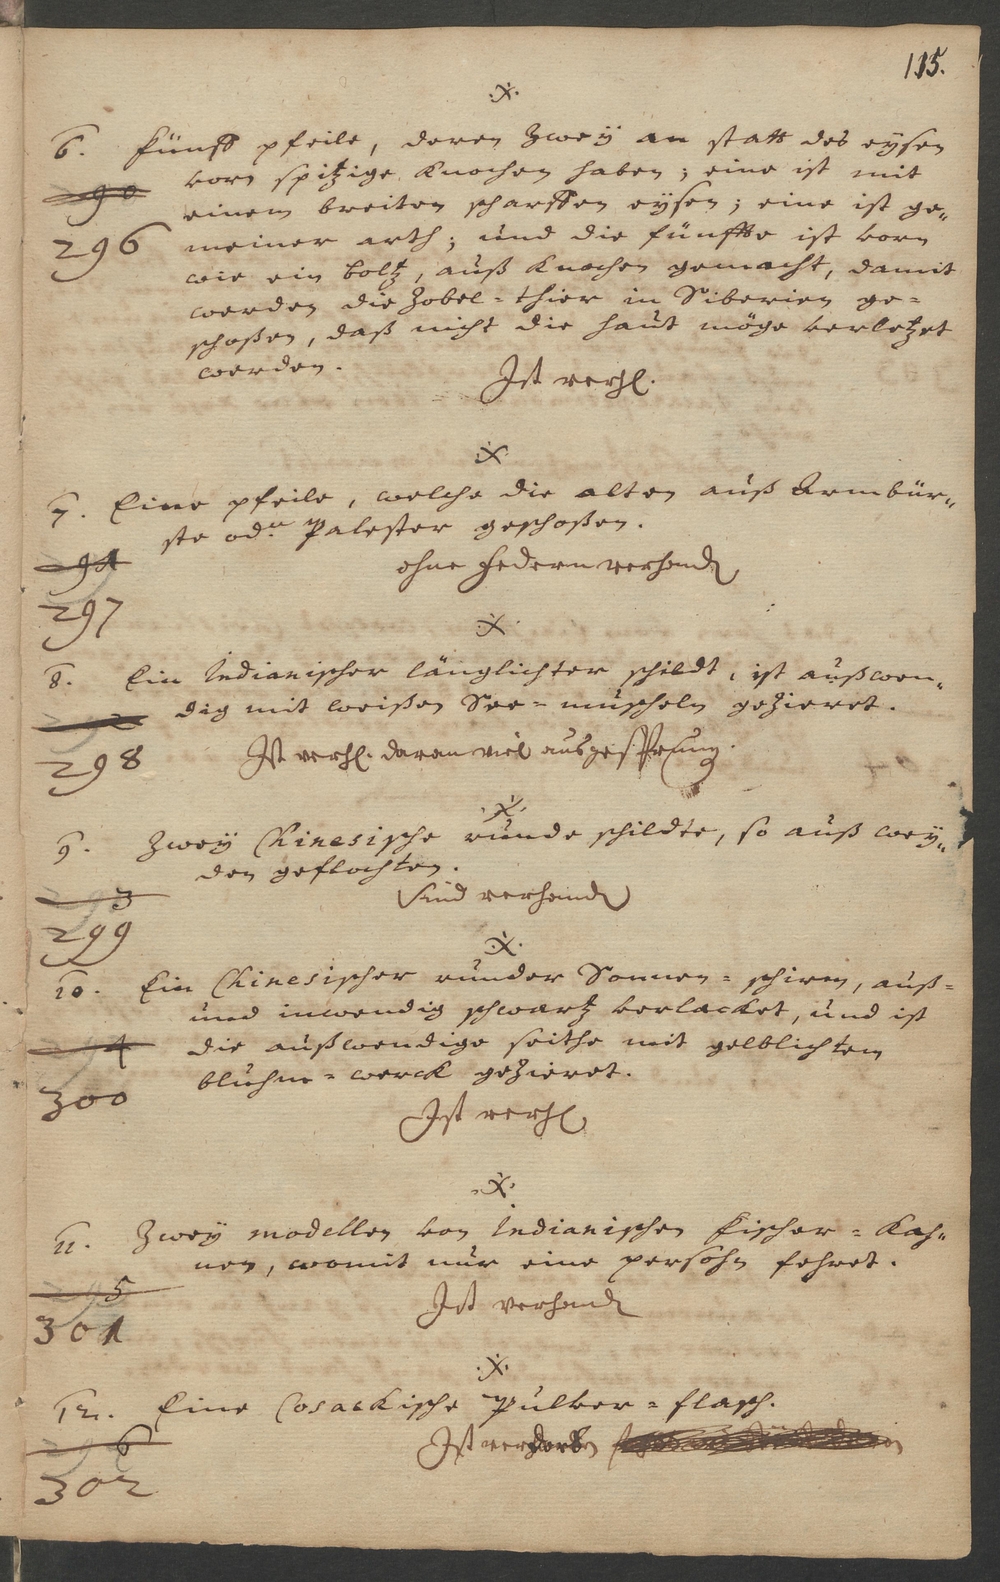 115.
.X.
6. Fünff pfeile, deren Zweÿ an statt des eÿsen
vorn spitzige Knochen haben; eine ist mit
90
einem breiten scharffen eÿsen; eine ist ge„
296
meiner arth; und die fünffte ist vorn
wie ein boltz, auß Knochen gemacht, damit
werden die Zobel=thier in Siberien ge=
schoßen, daß nicht die haut möge verletzet
werden.
Ist verh.
X
7. Eine pfeile, welche die alten auß Armbür„
ste od.r Palester geschoßen.
ohne Federn verhand
297
.X.
8. Ein Indianischer länglichter schildt, ist außwen„
dig mit weißen See=muscheln gezieret.
298
Ist verh. daran viel ausgesprung.
.X.
9. Zweÿ Chinesische runde schildte, so auß weÿ„
den geflochten.
Sind verhand
299
.X.
10. Ein Chinesischer runder Sonnen=schirm, auß=
und inwendig schwartz verlacket, und ist
die außwendige seithe mit gelblichtem
bluhm=werck gezieret.
300
Ist verh
.X.
11. Zweÿ modellen von Indianischen Fischer=Kah„
nen, womit nur eine persohn fehret.
Ist verhand
301
.X.
12. Eine Cosackische Pulver=flasch.
Ist verdorben
302